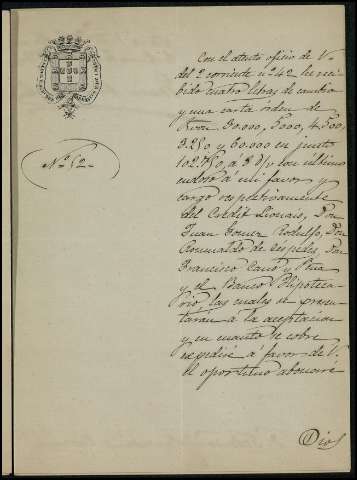 Nº 12.
Con el atento oficio de V.
del 2 corriente nº 42 he reci
bido cuatro letras de cambio
y una carta órden de
30.000, 5.000, 4.500,
3.280 y 60.000 en junto
102.780, á 8 d/v con último
endoso á mi favor y
cargo respectivamente
del Crédit Lionais, Don
Juan Rodulfo, Don
Romualdo de Cespedes, Don
Francisco Cano y
y el Banco Hipoteca
rio, las cuales se presen
tarán á la aceptacion
y en cuanto se cobre
expediré á favor de V.
el oportuno abonaré
Dios